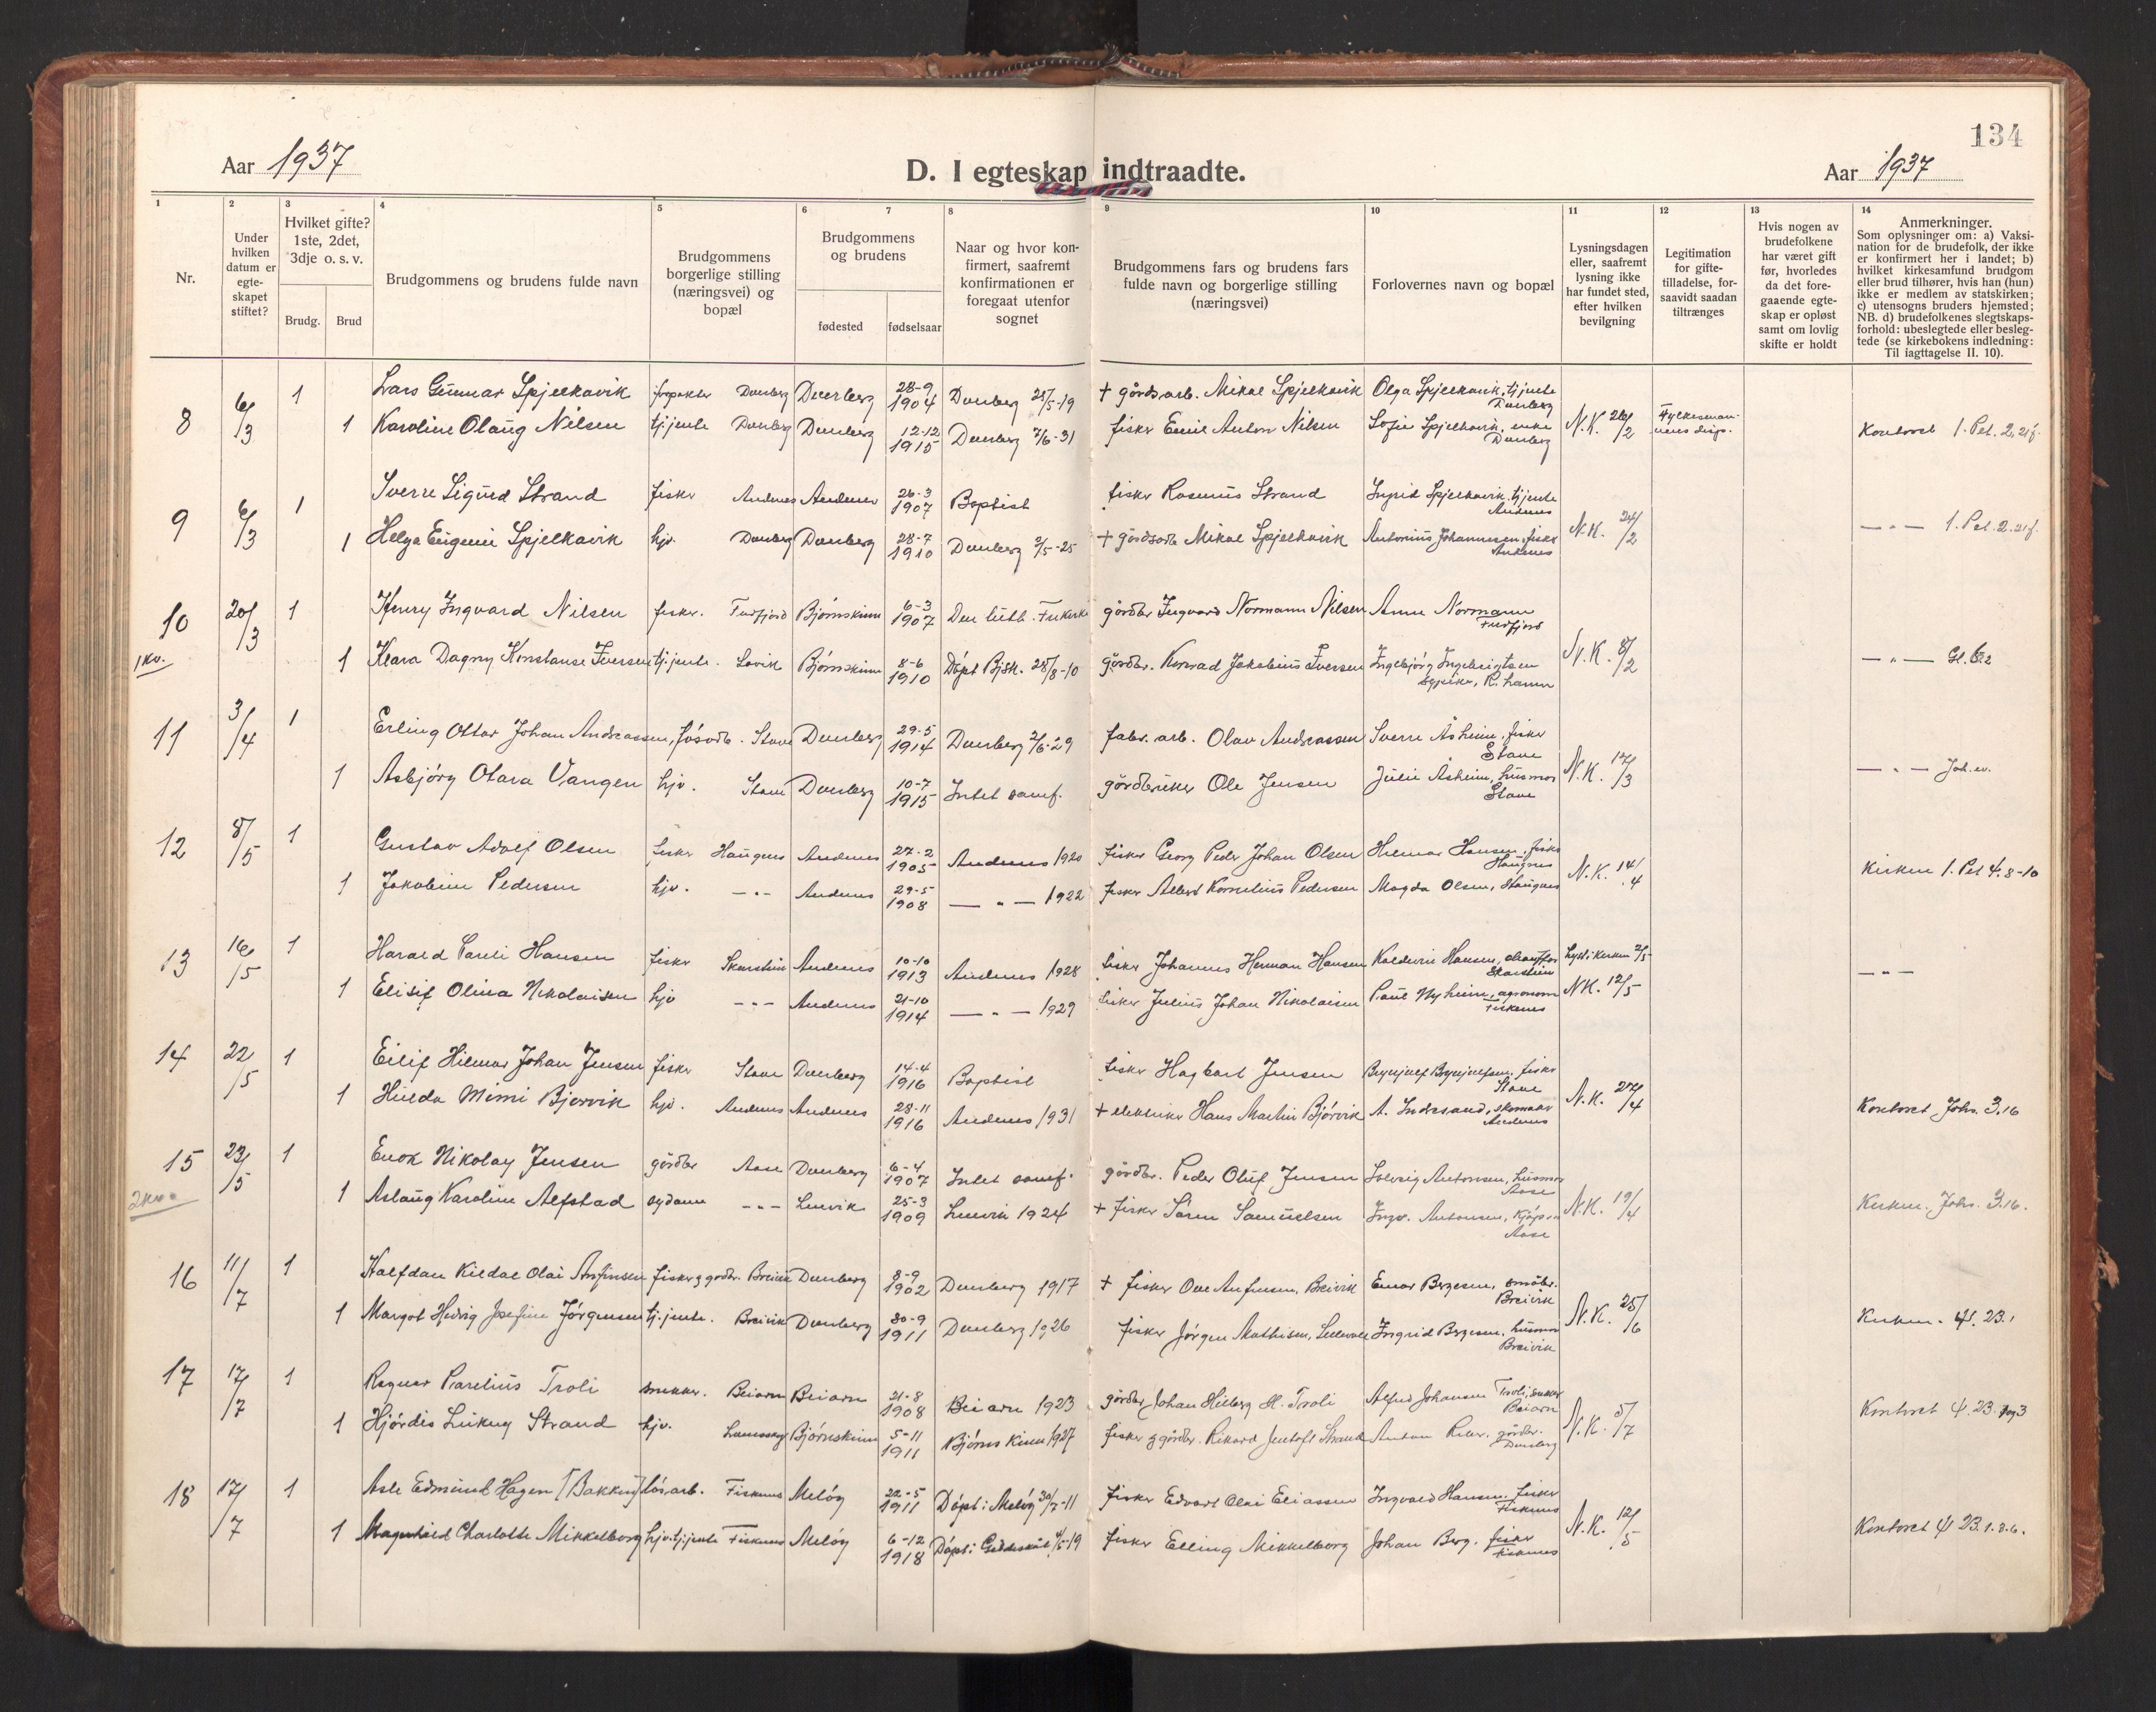 134
Aar 1937
D. I egteskap indtraadte.
Aar 1937
1 2 3 4 5 6 7 8 9 10 11 12 13 14
Nr.
Under hvilken datum er egteskapet stiftet?
Hvilket gifte? 1ste, 2det, 3dje o. s. v.
Brudg. Brud
Brudgommens og brudens fulde navn
Brudgommens borgerlige stilling (næringsvei) og bopæl
Brudgommens og brudens
fødested fødselsaar
Naar og hvor konfirmert, saafremt konfirmationen er foregaat utenfor sognet
Brudgommens fars og brudens fars fulde navn og borgerlige stilling (næringsvei)
Forlovernes navn og bopæl
Lysningsdagen eller, saafremt lysning ikke har fundet sted, efter hvilken bevilgning
Legitimation for giftetilladelse, forsaavidt saadan tiltrænges
Hvis nogen av brudefolkene har været gift før, hvorledes da det foregaaende egteskap er opløst samt om lovlig skifte er holdt
Anmerkninger.
Som oplysninger om: a) Vaksination for de brudefolk, der ikke er konfirmert her i landet; b) hvilket kirkesamfund brudgom eller brud tilhører, hvis han (hun) ikke er medlem av statskirken; c) utensogns bruders hjemsted; NB. d) brudefolkenes slegtskapsforhold: ubeslegtede eller beslegtede (se kirkebokens indledning: Til iagttagelse II. 10).
8 6/3 1 Lars Gunnar Spjelkavik Dverberg Dverberg 28-9 1904 Dverberg 25/5-19 + gårdsarb. Mikal Spjelkavik Olga Spjelkavik, tj.jente Dverberg
1 Karoline Olaug Nilsen tj.jente Dverberg Dverberg 12-12 1915 Dverberg 7/6-31 fisker Emil Anton Nilsen Sofie Spjelkavik, enke Dverberg N.K. 26/2 Fylkesmannens disp. Kontoret 1. Pet. 2, 21f.
9 6/3 1 Sverre Sigurd Strand fisker Andenes Andenes 26-3 1907 Baptist fisker Rasmus Strand Ingrid Spjelkavik, tj.jente Andenes
1 Helga Eugenie Spjelkavik hjv. Dverberg Dverberg 28-7 1910 Dverberg -25 + gårdsarb Mikal Spjelkavik Antonius Johannesen, fisker Andenes N.K. 24/2 — " — 1. Pet. 2. 21f.
10 20/3 1 Henry Ingvard Nilsen fisker. Fiskfjord Bjørnskinn 6-3 1907 Den luth. Frikirke gårdbr Ingvard Normann Nilsen Anna Normann
1 kv. 1 Klara Dagny Konstanse Iversen tj.jente. Lovik Bjørnskinn 8-6 1910 Døpt Bjsk. 28/8-10 gårdbr. Konrad Jakobius Iversen Ingebjørg Ingebrigtsen R. hamn N.K. 8/2 — " —
11 3/4 1 Erling Ottar Johan Andreassen, Stave Dverberg 29-5 1914 Dverberg 2/6-29 fabr. arb. Olav Andreassen Sverre Åsheim, fisker Stave
1 Asbjørg Otara Vangen hjv. Stave Dverberg 10-7 1915 Intet samf. gårdbruker Ole Jensen Julie Åsheim, husmor Stave N.K. 17/3 — " — Joh. ev.
12 8/5 1 Gustav Adolf Olsen fisker Haugnes Andenes 27-2 1905 Andenes 1920 fisker Georg Peder Johan Olsen Hilmar Hansen, fisker Haugnes
1 Jakobine Pedersen hjv. - " - Andenes 29-5 1908 — " — 1922 fisker Albert Kornelius Pedersen Magda Olsen, Haugnes N.K. 14/4 Kirken 1. Pet 4. 8-10
13 16/5 1 Harald Hansen fisker Skarstein Andenes 10-10 1913 Andenes 1928 fisker Johannes Herman Hansen Hansen, chauffør Skarstein Lyst i Kirken 2/5
1 Elisif Olina Nikolaisen hjv - " - Andenes 21-10 1914 — " — 1929 fisker Julius Johan Nikolaisen Paul Nyheim, agronom Fiskenes N.K. 12/5 — " —
14 22/5 1 Eilif Hilmar Johan Jensen fisker Stave Dverberg 14-4 1916 Baptist fisker Hagbart Jensen Brynjulf Brynjulfsen, fisker Stave
1 Hulda Mimi Bjørvik hjv. Andenes Andenes 28-11 1916 Andenes 1931 + elektriker Hans Martin Bjørvik A. Indresand, skomaker Andenes N.K. 27/4 Kontoret Johs. 3.16
15 23/5 1 Enok Nikolay Jensen gårdbr Aase Dverberg 6-4 1907 Intet samf. gårdbr. Peder Oluf Jensen Solveig Antonsen, husmor Aase
1 Aslaug Karoline Alfstad sydame - " - Lenvik 25-3 1909 Lenvik 1924 + fisker Sören Samuelsen Ingv. Antonsen, Aase N.K. 19/4 Kirken. Johs. 3.16.
16 11/7 1 Halfdan Kildal Olai Anfinsen fisker g gårdbr. Breivik Dverberg 8-9 1902 Dverberg 1917 + fisker Ove Anfinsen, Breivik Einar Bergesen, småbr. Breivik
1 Margot Hedvig Josefine Jörgensen tj.jente. Breivik Dverberg 30-9 1911 Dverberg 1926 fisker Jörgen Mathisen, Ingrid Bergesen, husmor Breivik N.K. 25/6 Kirken. 4. 23.
17 17/7 1 Ragnar Parelius Troli snekker. Beiarn Beiarn 21-8 1908 Beiarn 1923 gårdbr Johan Hilberg H. Troli Alfred Johansen Troli, snekker Beiarn
1 Hjördis Strand hjv. Bjørnskinn 5-11 1911 Bjørnskinn 1927 fisker g gårdbr. Rikard Jentoft Strand Anton gårdbr. Dverberg N.K. 5/7 Kontoret 4. 23.
18 17/7 1 Asle Edmund Hagen [Bakken] løsarb. Fiskenes Meløy 22-5 1911 Døpt i Meløy 30/7-11 fisker Edvart Olai Eliassen Ingvald Hansen. fisker Fiskenes
1 Magnhild Charlotte Mikkelborg hjv.tj.jente Fiskenes Meløy 6-12 1918 Døpt i Gildeskål -19 fisker Elling Mikkelborg Johan Berg. fisker Fiskenes N.K. 12/5 Kontoret 4 23.